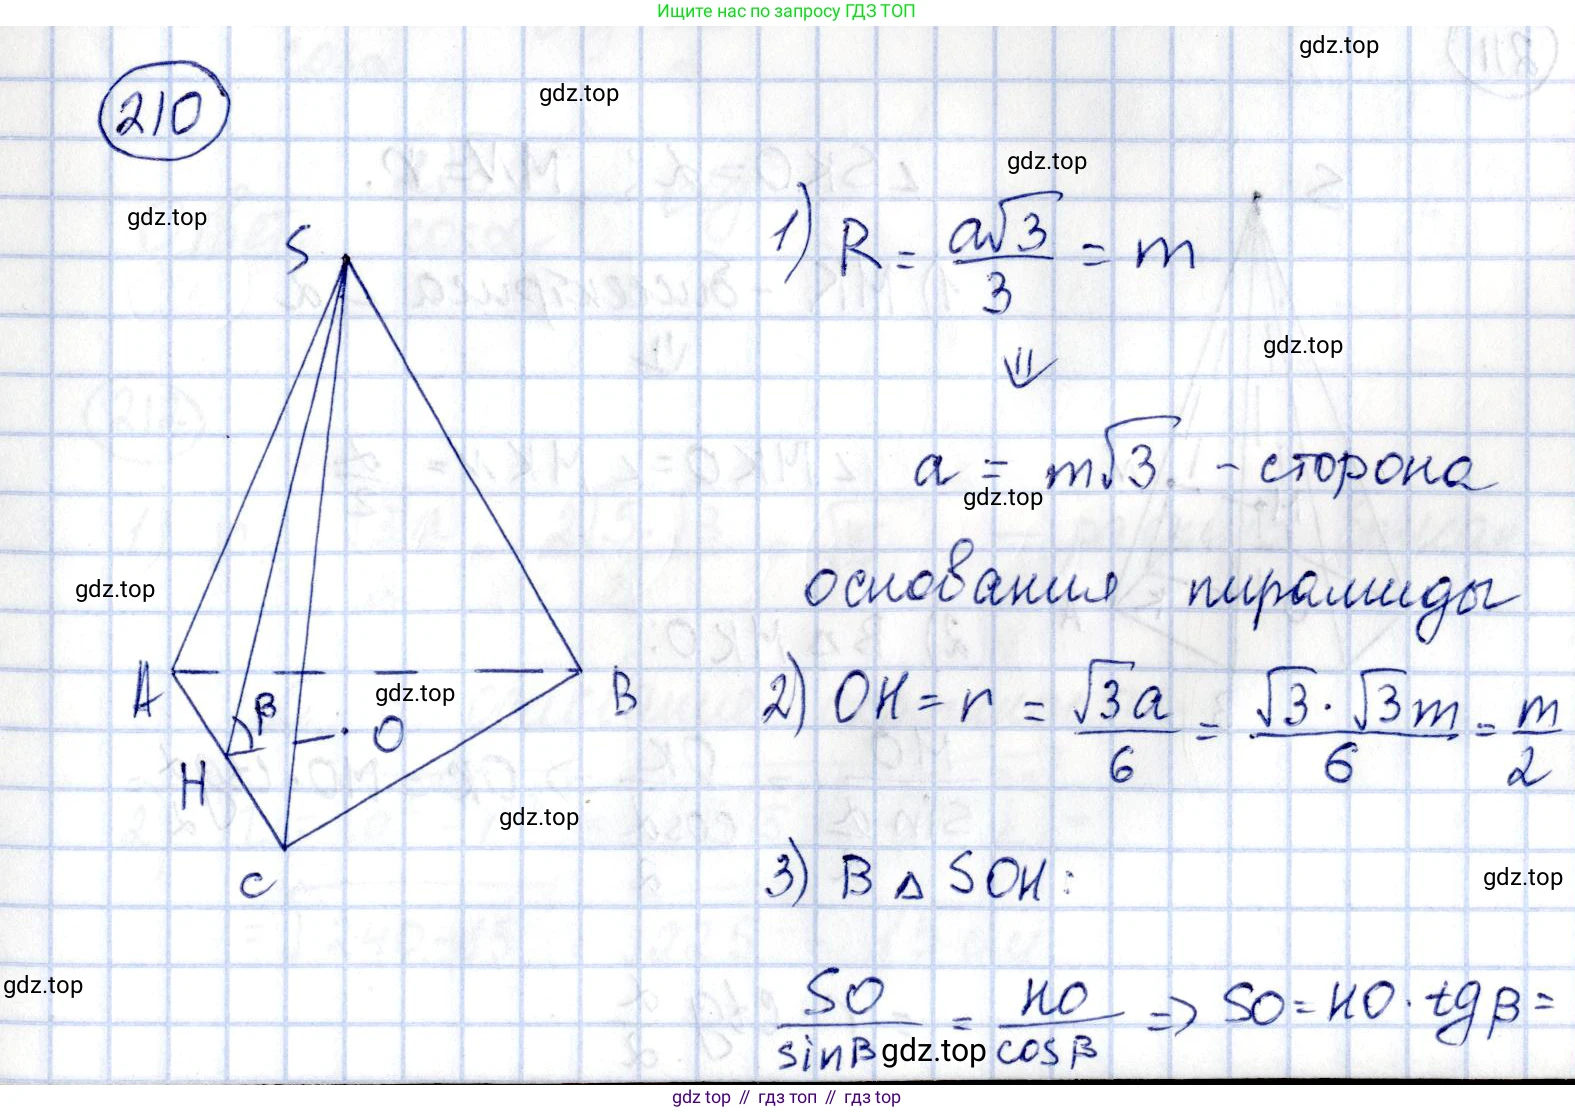 Ищите нас по запросу ГДЗ ТОП
gdz.top
210
gdz.top
gdz.top
gdz.top
S
1) R = a√3/3 = m
gdz.top
⇓
a = m√3 - сторона
gdz.top
основания пирамиды
gdz.top
A
B
gdz.top
β
O
H
C
2) OH = r = √3a/6 = √3·√3m/6 = m/2
gdz.top
3) В △ SOH:
gdz.top
gdz.top
SO/sinβ = HO/cosβ => SO = HO · tgβ =
gdz.top
gdz.top // гдз топ // гдз top